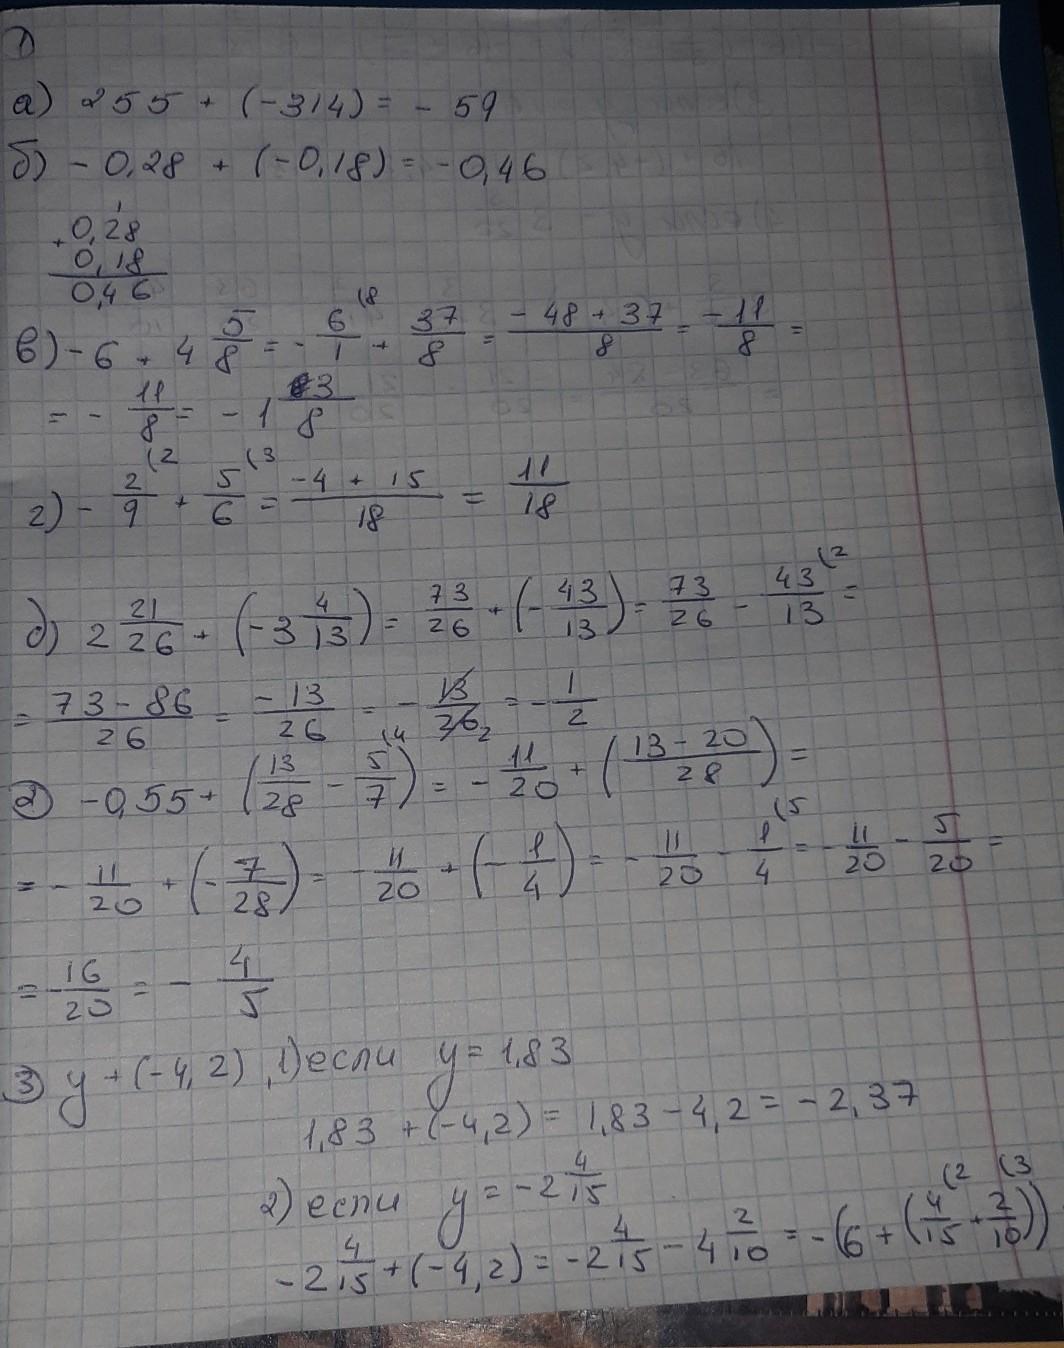 1)
а) 255 + (-314) = - 59
б) - 0,28 + (-0,18) = -0,46
1
+ 0,28
0,18
0,46
в) - 6 + 4 5/8 = - 6/1 (8 + 37/8 = (- 48 + 37)/8 = -11/8 =
= - 11/8 = - 1 3/8
г) - 2/9 (2 + 5/6 (3 = (-4 + 15)/18 = 11/18
д) 2 21/26 + (-3 4/13) = 73/26 + (- 43/13) = 73/26 - 43/13 (2 =
= (73 - 86)/26 = -13/26 = - 13/26 2 = - 1/2
2) -0,55 + (13/28 - 5/7 (4) = - 11/20 + ((13 - 20)/28) =
= - 11/20 + (- 7/28) = - 11/20 + (- 1/4) = - 11/20 - 1/4 (5 = - 11/20 - 5/20 =
= 16/20 = - 4/5
3) у + (-4,2), 1) если у = 1,83
1,83 + (-4,2) = 1,83 - 4,2 = - 2,37
2) если у = -2 4/15
-2 4/15 + (-4,2) = -2 4/15 - 4 2/10 = - (6 + (4/15 (2 + 2/10 (3))